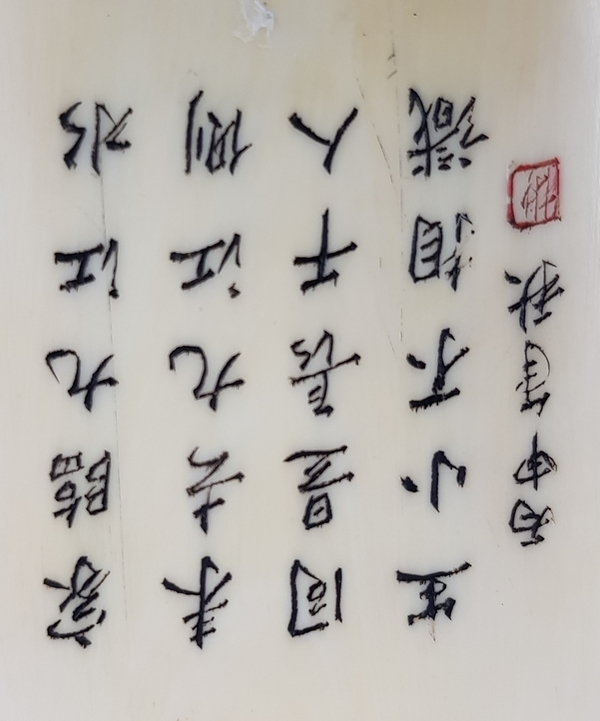 家臨九江水
来去九江側
同是長干人
生小不相識
丙申秋